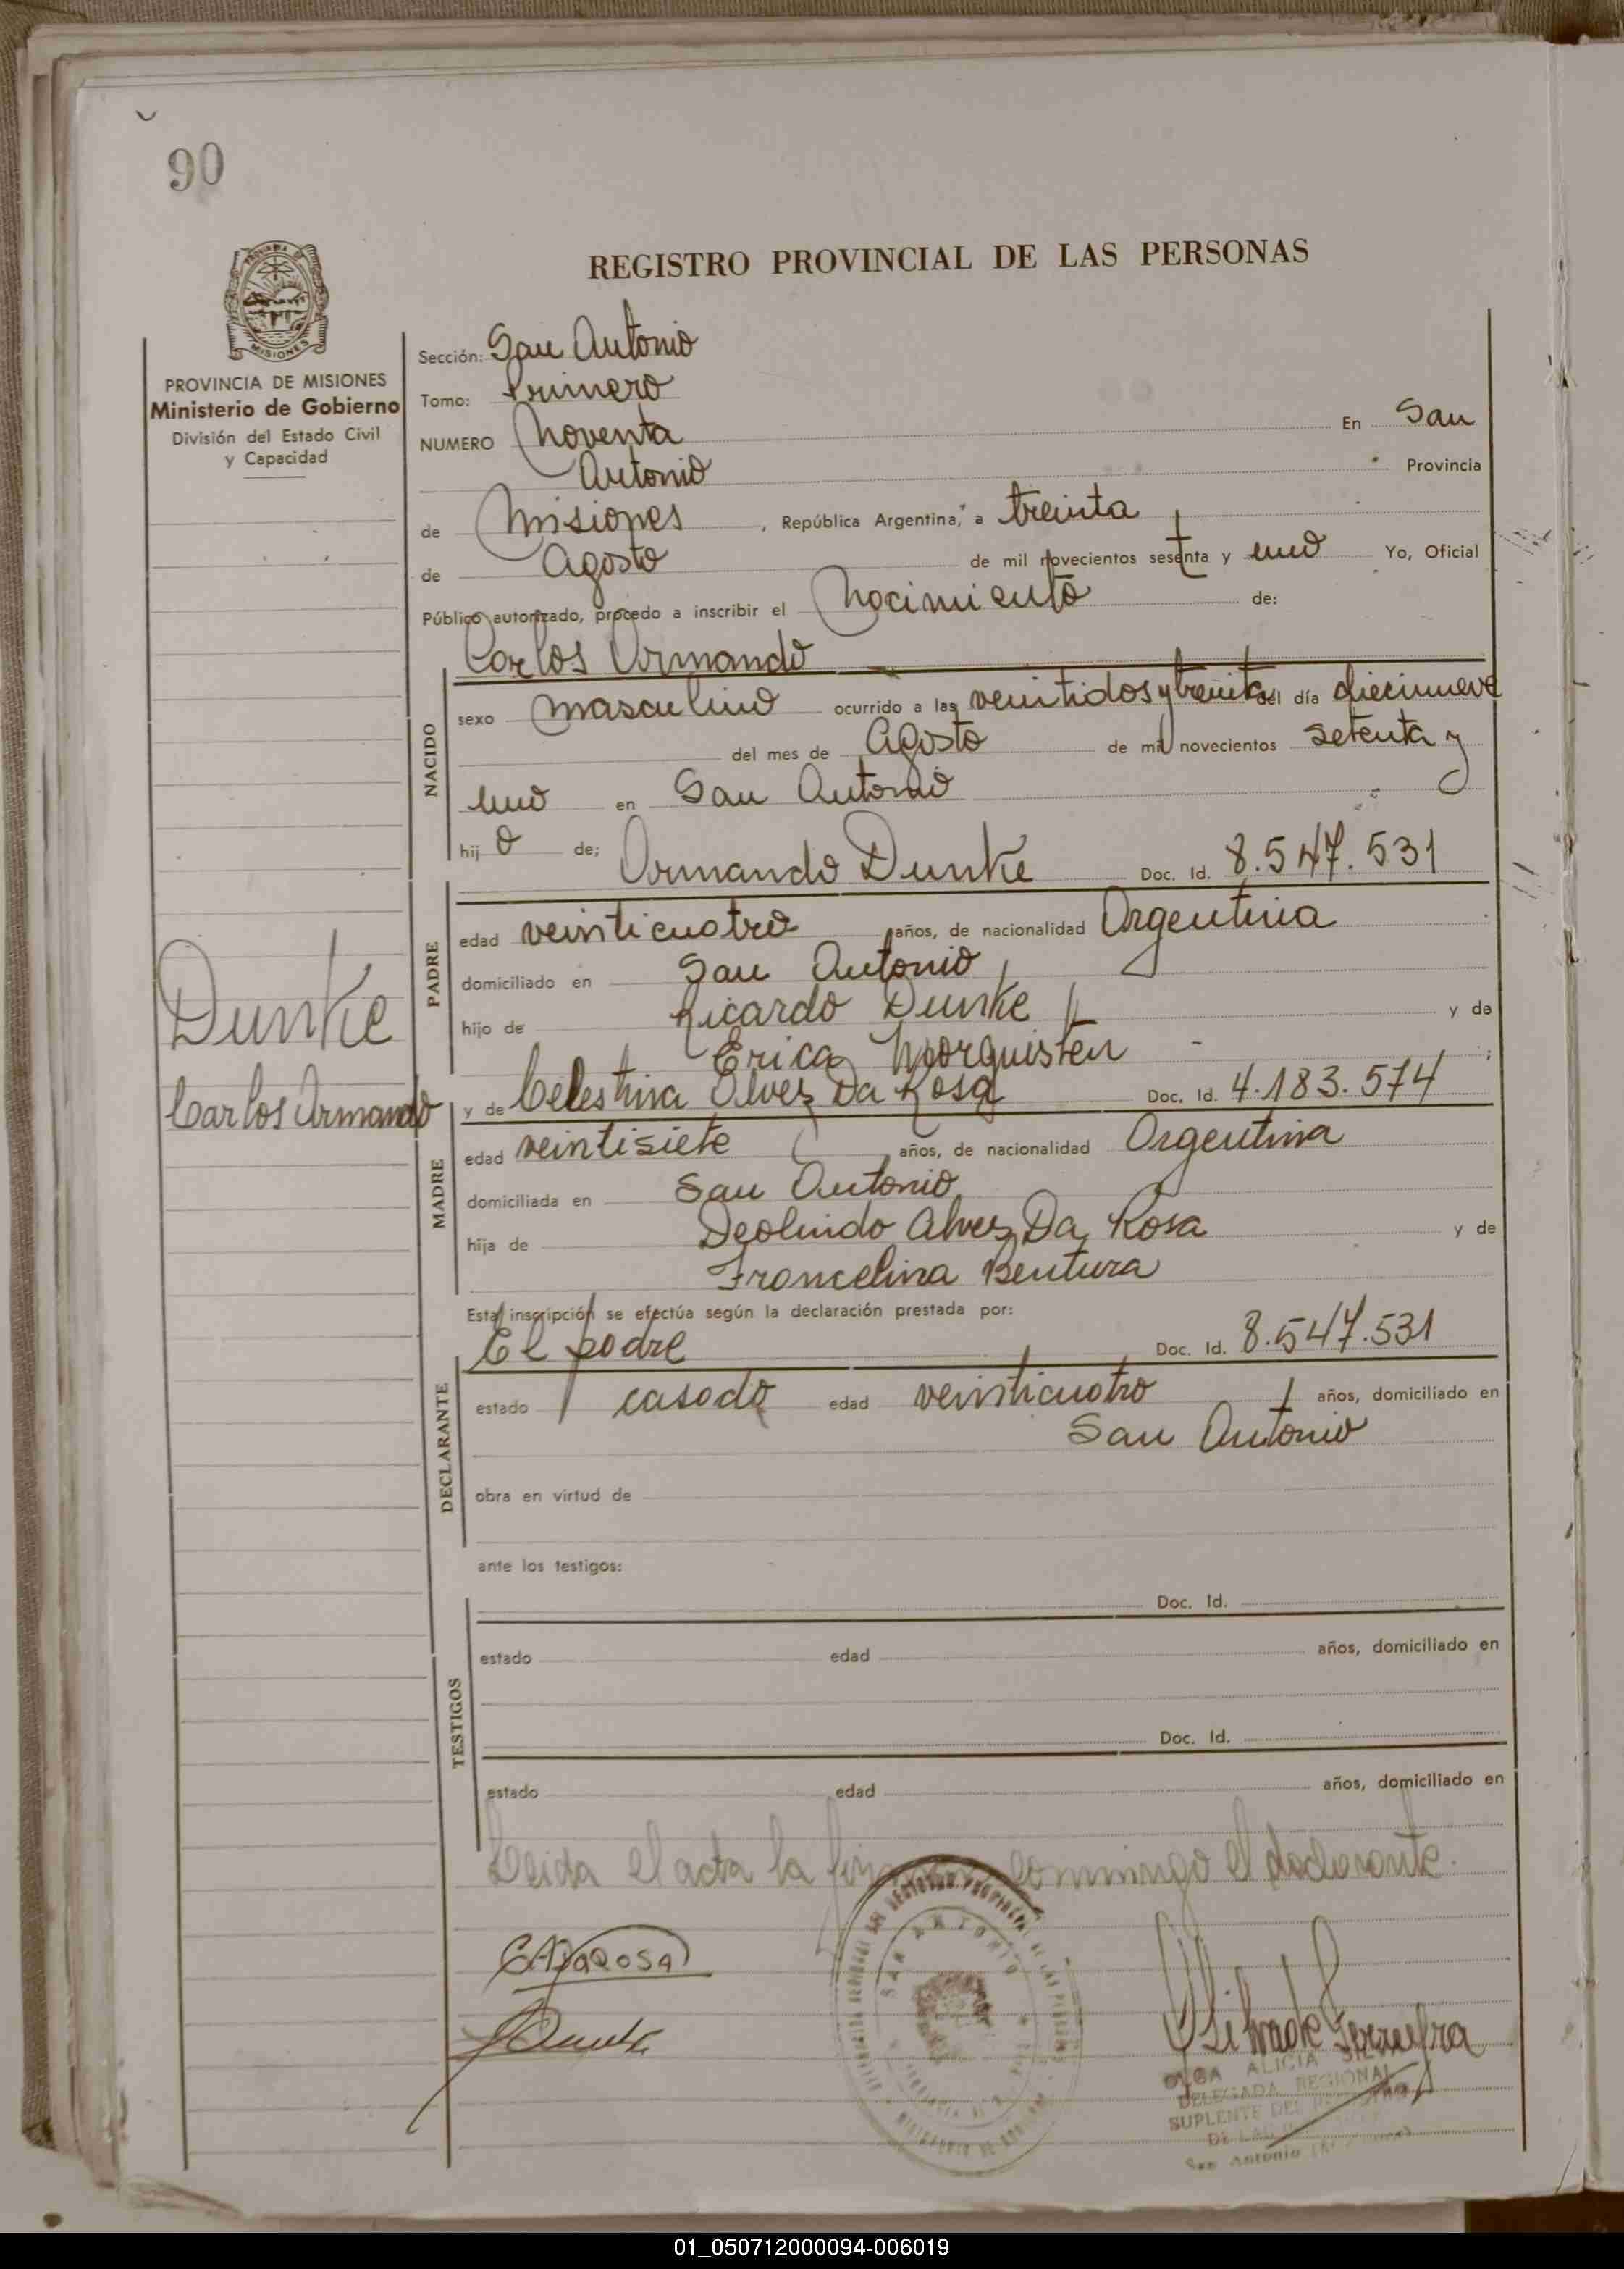 90
REGISTRO PROVINCIAL DE LAS PERSONAS
MISIONES
PROVINCIA DE MISIONES
Ministerio de Gobierno
División del Estado Civil
y Capacidad
Sección: San Antonio
Tomo: Primero
NUMERO Noventa En San
Antonio Provincia
de Misiones, República Argentina, a treinta
de Agosto de mil novecientos setenta y uno Yo, Oficial
Público autorizado, procedo a inscribir el Nacimiento de:
Carlos Armando
NACIDO
sexo masculino ocurrido a las veintidos y treinta del día diecinueve
del mes de Agosto de mil novecientos setenta y
uno en San Antonio
hijo de; Armando Dunke Doc. Id. 8.547.531
PADRE
edad veinticuatro años, de nacionalidad Argentina
domiciliado en San Antonio
hijo de Ricardo Dunke y de
Erica Morquisten ;
Dunke
Carlos Armando
y de Celestina Alvez Da Rosa Doc. Id. 4.183.574
MADRE
edad veintisiete años, de nacionalidad Argentina
domiciliada en San Antonio
hija de Deolindo Alvez Da Rosa y de
Francelina Bentura
Esta inscripción se efectúa según la declaración prestada por:
El padre Doc. Id. 8.547.531
DECLARANTE
estado casado edad veinticuatro años, domiciliado en
San Antonio
obra en virtud de
ante los testigos:
Doc. Id.
TESTIGOS
estado edad años, domiciliado en
Doc. Id.
estado edad años, domiciliado en
Leida el acta la firma conmingo el declarante.
CADaROSA
Dunke
SAN ANTONIO
OLGA ALICIA
DELEGADA REGIONAL
SUPLENTE DEL
DE LAS
San Antonio
01_050712000094-006019